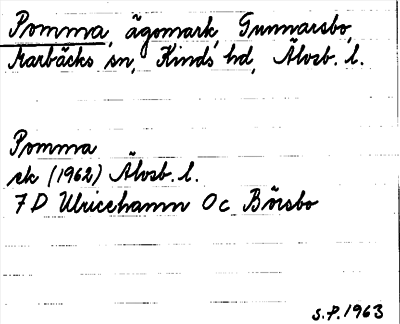 Pomma, ägomark, Gunnarsbo,
Marbäcks sn, Kinds hd, Älvsb. l.
Pomma
ek (1962) Älvsb. l.
7 D Ulricehamn 0 c Börsbo
S.P. 1963